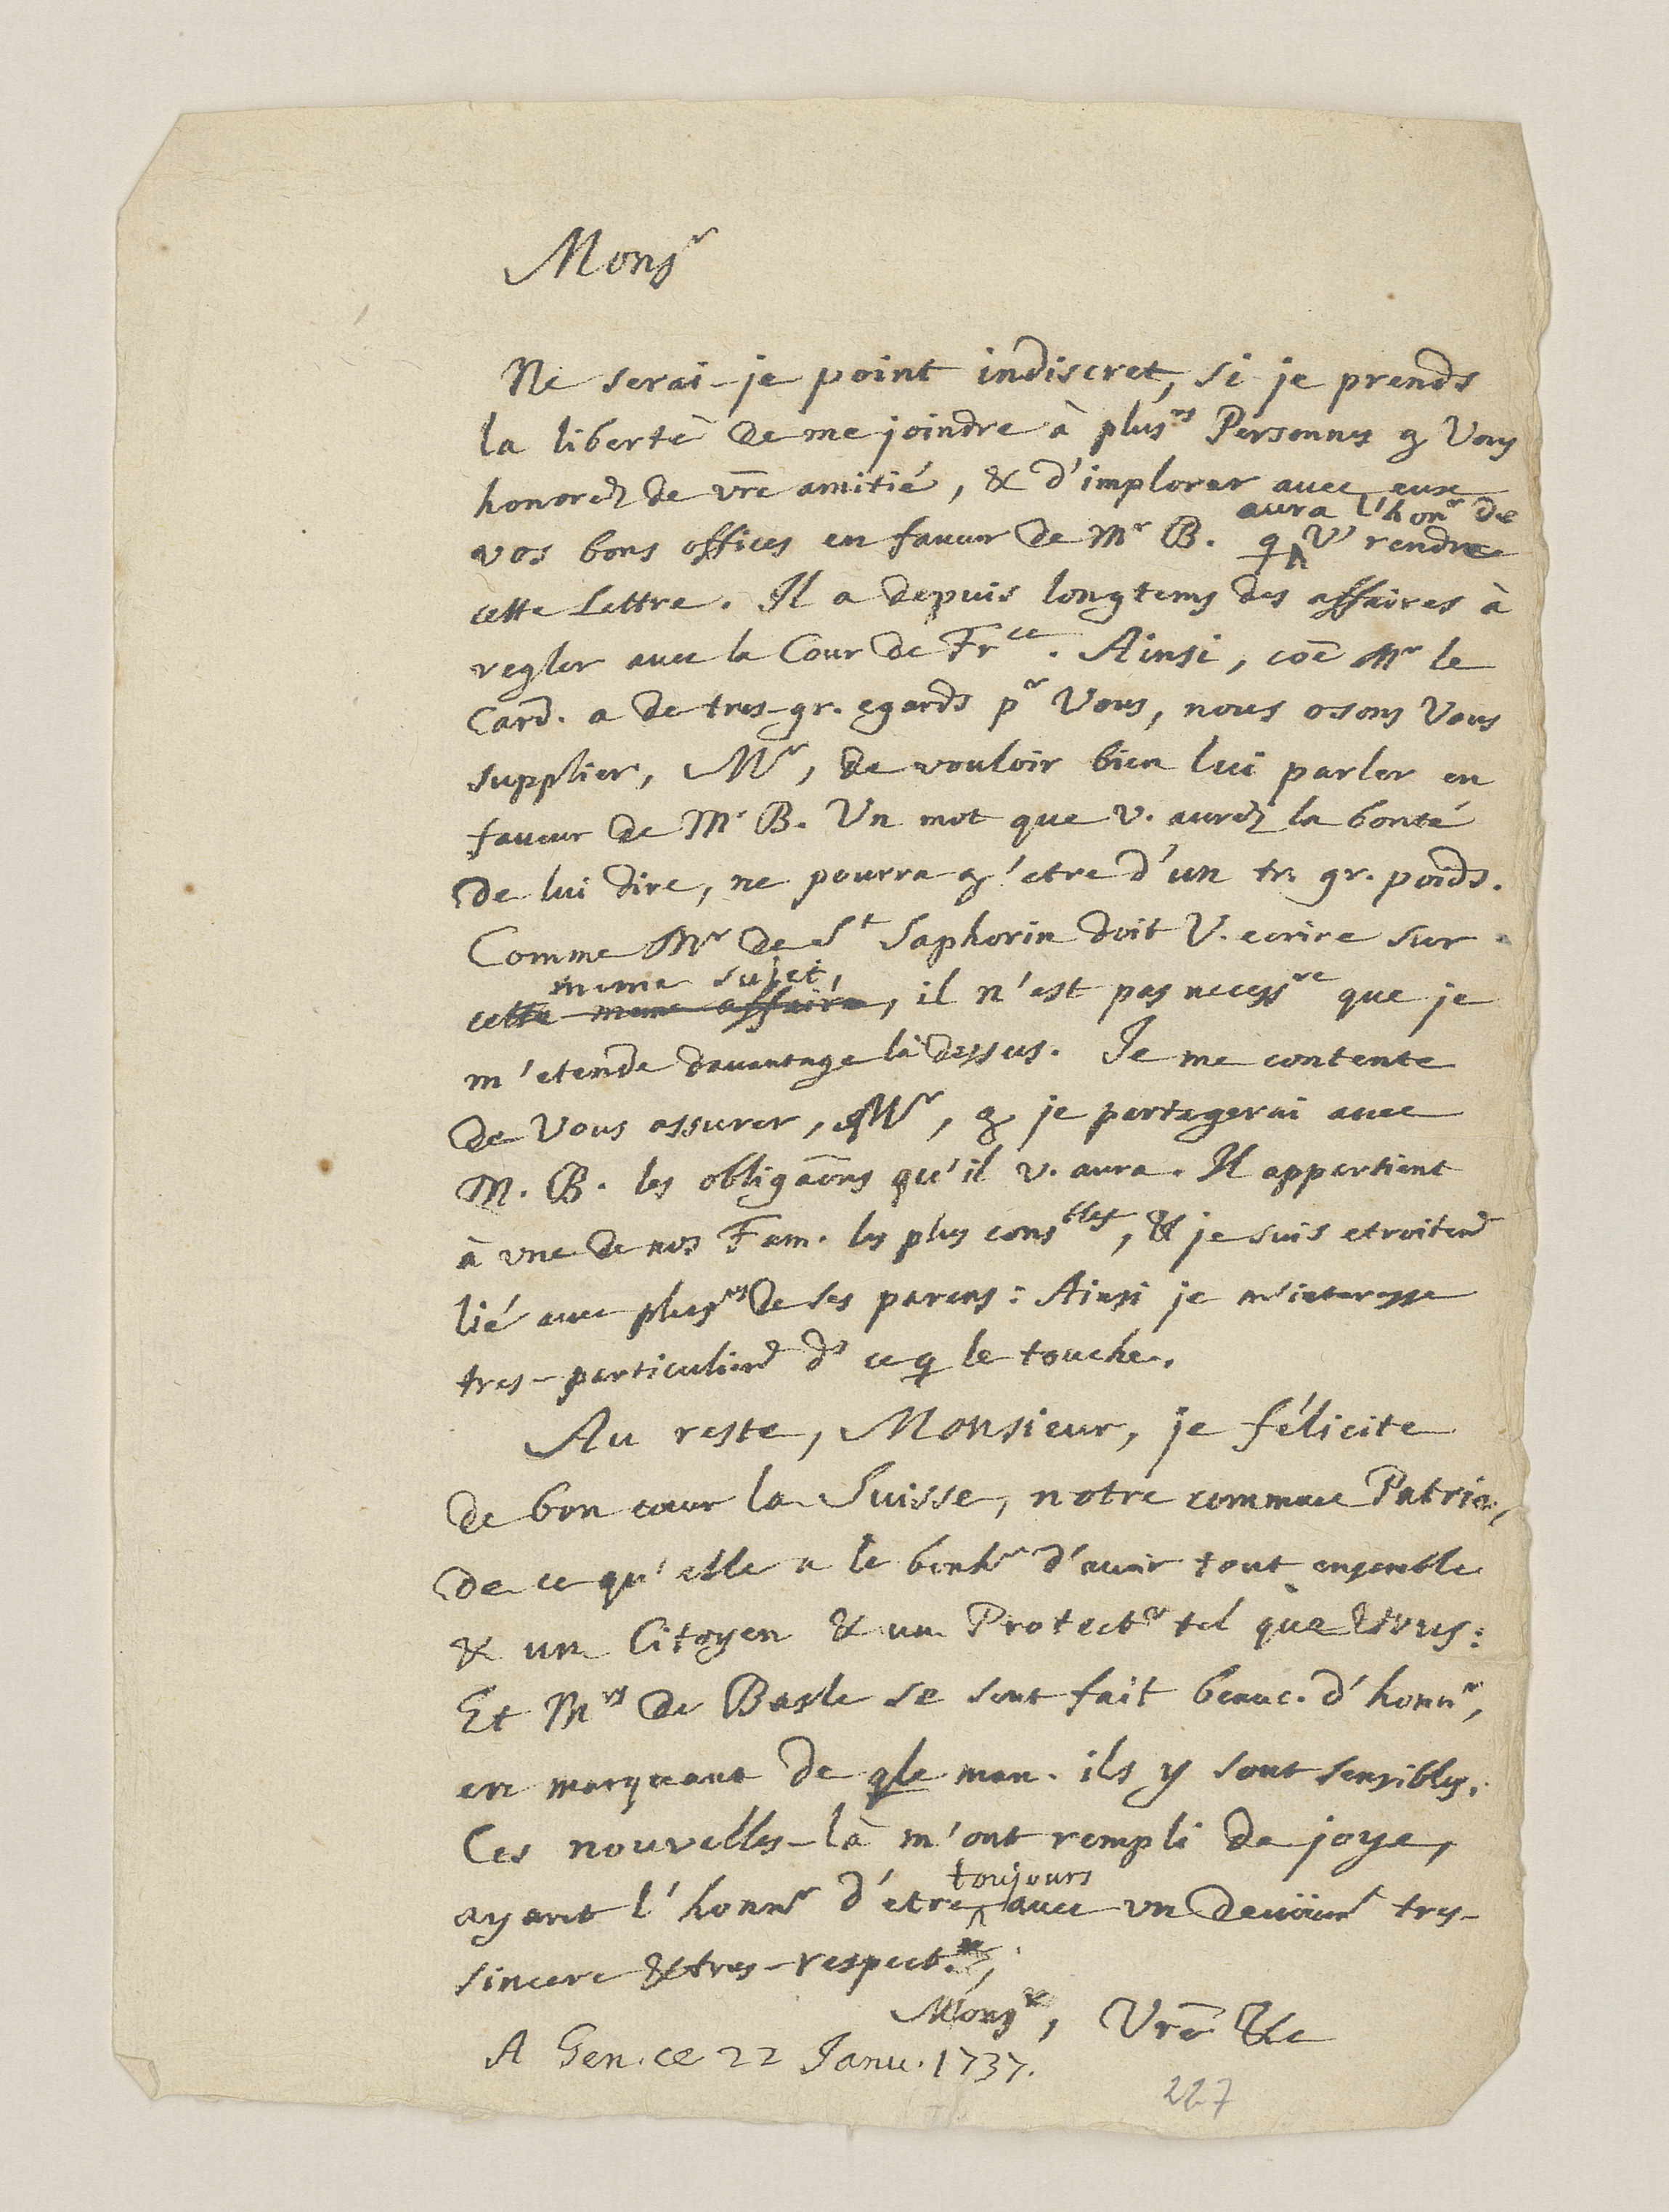 Monsr
Ne serai-je point indiscret, si je prends
la liberté de me joindre à plusrs Personnes q Vous
honorez de vre amitié, & d'implorer avec eux
aura l'honr de
vos bons offices en faveur de Mr B. q V' rendre
cette Lettre. Il a depuis longtems des affaires à
regler avec la Cour de Frce. Ainsi, coe Mr le
Card. a de tres-gr. egards pr Vous, nous osons Vous
supplier, Mr, de vouloir bien lui parler en
faveur de Mr B. Un mot que v. aurez la bonté
de lui dire, ne pourra q'etre d'un tr. gr. poids.
Comme Mr de St Saphorin doit V. ecrire sur
meme sujet,
cette meme affaire, il n'est pas necessre que je
m'etende davantage là dessus. Je me contente
de Vous assurer, Mr, q je partagerai avec
M. B. les obligaons qu'il v. aura. Il appartient
à une de nos Fam. les plus consbles, & je suis etroitemt
lié avec plusrs de ses parens: Ainsi je m'interesse
tres-particulieremt ds ce q le touche.
Au reste, Monsieur, je félicite
de bon cœur la Suisse, notre commune Patrie,
de ce qu'elle a le bonhr d'avoir tout ensemble
& un Citoyen & un Protectr tel que Vous:
Et Mrs de Basle se sont fait beauc. d'honnr,
en marquant de qle man. ils y sont sensibles.
Ces nouvelles-là m'ont rempli de joye,
toujours
ayant l'honnr d'etre avec un devoüemt tres-
sincere & tres-respect.
Monsr, Vre &c
A Gen. ce 22 Janv. 1737.
227